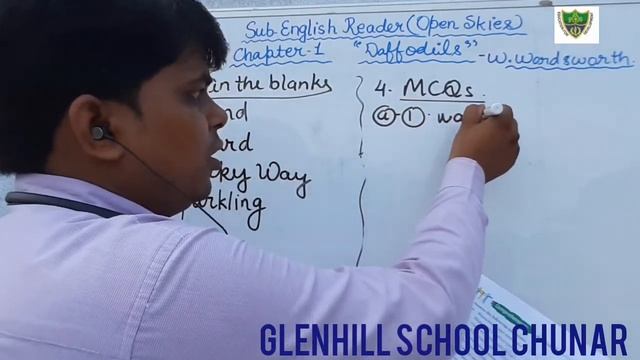 Sub-English Reader (Open Skies)
Chapter-1 "Daffodils" - W. Wardsworth
in the blanks
Way
4. MCQs.
a-1. wa
GLENHILL SCHOOL CHUNAR